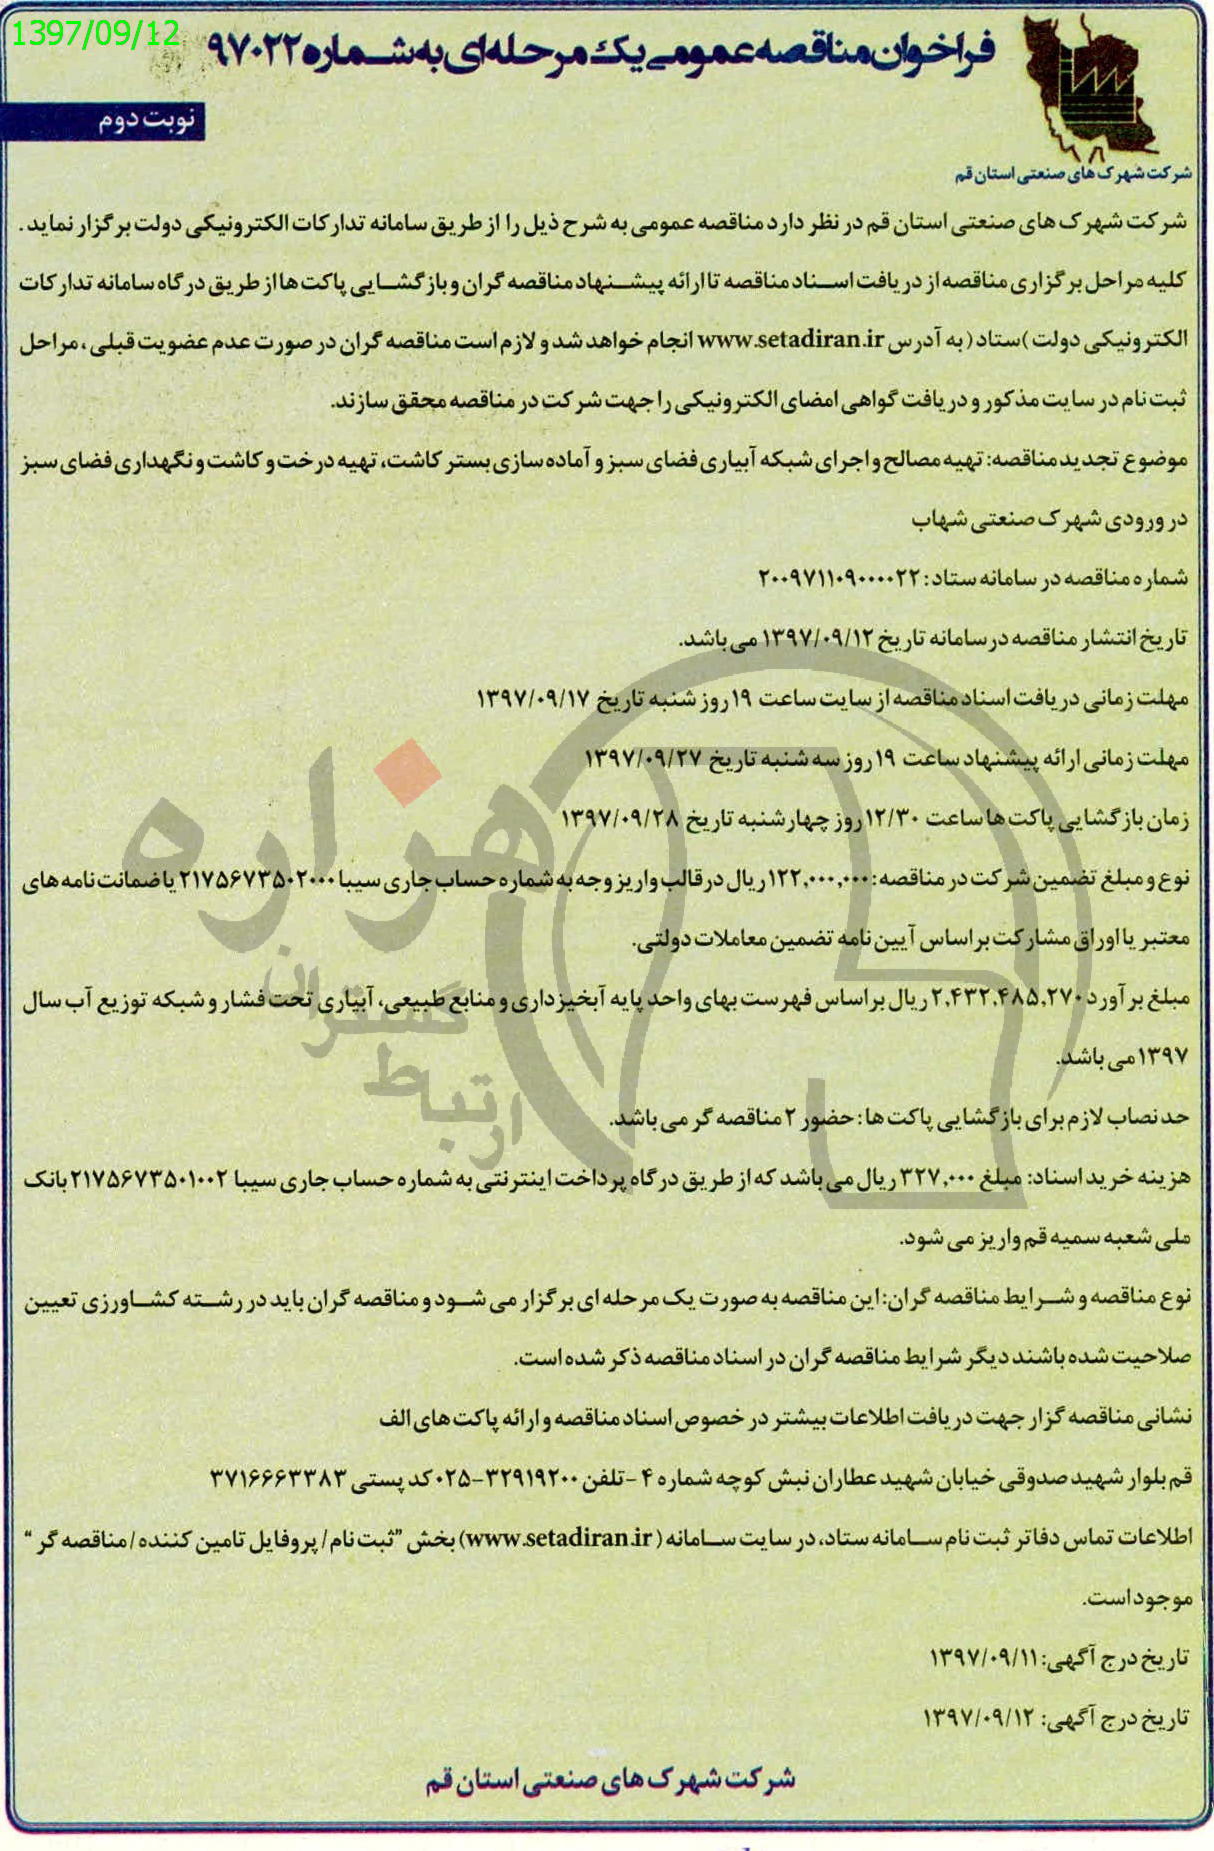 1397/09/12
فراخوان مناقصه عمومی یک مرحله‌ای به شماره ۹۷۰۲۲
نوبت دوم
شرکت شهرک های صنعتی استان قم
شرکت شهرک های صنعتی استان قم در نظر دارد مناقصه عمومی به شرح ذیل را از طریق سامانه تدارکات الکترونیکی دولت برگزار نماید.
کلیه مراحل برگزاری مناقصه از دریافت اسناد مناقصه تا ارائه پیشنهاد مناقصه گران و بازگشایی پاکت ها از طریق درگاه سامانه تدارکات
الکترونیکی دولت )ستاد( به آدرس www.setadiran.ir انجام خواهد شد و لازم است مناقصه گران در صورت عدم عضویت قبلی، مراحل
ثبت نام در سایت مذکور و دریافت گواهی امضای الکترونیکی را جهت شرکت در مناقصه محقق سازند.
موضوع تجدید مناقصه: تهیه مصالح و اجرای شبکه آبیاری فضای سبز و آماده سازی بستر کاشت، تهیه درخت و کاشت و نگهداری فضای سبز
در ورودی شهرک صنعتی شهاب
شماره مناقصه در سامانه ستاد: ۲۰۰۹۷۱۱۰۹۰۰۰۰۲۲
تاریخ انتشار مناقصه در سامانه تاریخ ۱۳۹۷/۰۹/۱۲ می باشد.
مهلت زمانی دریافت اسناد مناقصه از سایت ساعت ۱۹ روز شنبه تاریخ ۱۳۹۷/۰۹/۱۷
مهلت زمانی ارائه پیشنهاد ساعت ۱۹ روز سه شنبه تاریخ ۱۳۹۷/۰۹/۲۷
زمان بازگشایی پاکت ها ساعت ۱۲/۳۰ روز چهارشنبه تاریخ ۱۳۹۷/۰۹/۲۸
نوع و مبلغ تضمین شرکت در مناقصه: ۱۲۲,۰۰۰,۰۰۰ ریال در قالب واریز وجه به شماره حساب جاری سیبا ۲۱۷۵۶۷۳۵۰۲۰۰۰ یا ضمانت نامه های
معتبر یا اوراق مشارکت بر اساس آیین نامه تضمین معاملات دولتی.
مبلغ برآورد ۲,۴۳۲,۴۸۵,۲۷۰ ریال بر اساس فهرست بهای واحد پایه آبخیزداری و منابع طبیعی، آبیاری تحت فشار و شبکه توزیع آب سال
۱۳۹۷ می باشد.
حد نصاب لازم برای بازگشایی پاکت ها: حضور ۲ مناقصه گر می باشد.
هزینه خرید اسناد: مبلغ ۳۲۷,۰۰۰ ریال می باشد که از طریق درگاه پرداخت اینترنتی به شماره حساب جاری سیبا ۲۱۷۵۶۷۳۵۰۱۰۰۲ بانک
ملی شعبه سمیه قم واریز می شود.
نوع مناقصه و شرایط مناقصه گران: این مناقصه به صورت یک مرحله ای برگزار می شود و مناقصه گران باید در رشته کشاورزی تعیین
صلاحیت شده باشند دیگر شرایط مناقصه گران در اسناد مناقصه ذکر شده است.
نشانی مناقصه گزار جهت دریافت اطلاعات بیشتر در خصوص اسناد مناقصه و ارائه پاکت های الف
قم بلوار شهید صدوقی خیابان شهید عطاران نبش کوچه شماره ۴ -تلفن ۳۲۹۱۹۲۰۰-۰۲۵ کد پستی ۳۷۱۶۶۶۳۳۸۳
اطلاعات تماس دفاتر ثبت نام سامانه ستاد، در سایت سامانه (www.setadiran.ir) بخش "ثبت نام/ پروفایل تامین کننده/ مناقصه گر"
موجود است.
تاریخ درج آگهی: ۱۳۹۷/۰۹/۱۱
تاریخ درج آگهی: ۱۳۹۷/۰۹/۱۲
شرکت شهرک های صنعتی استان قم
هزاره
ارتباط گستران